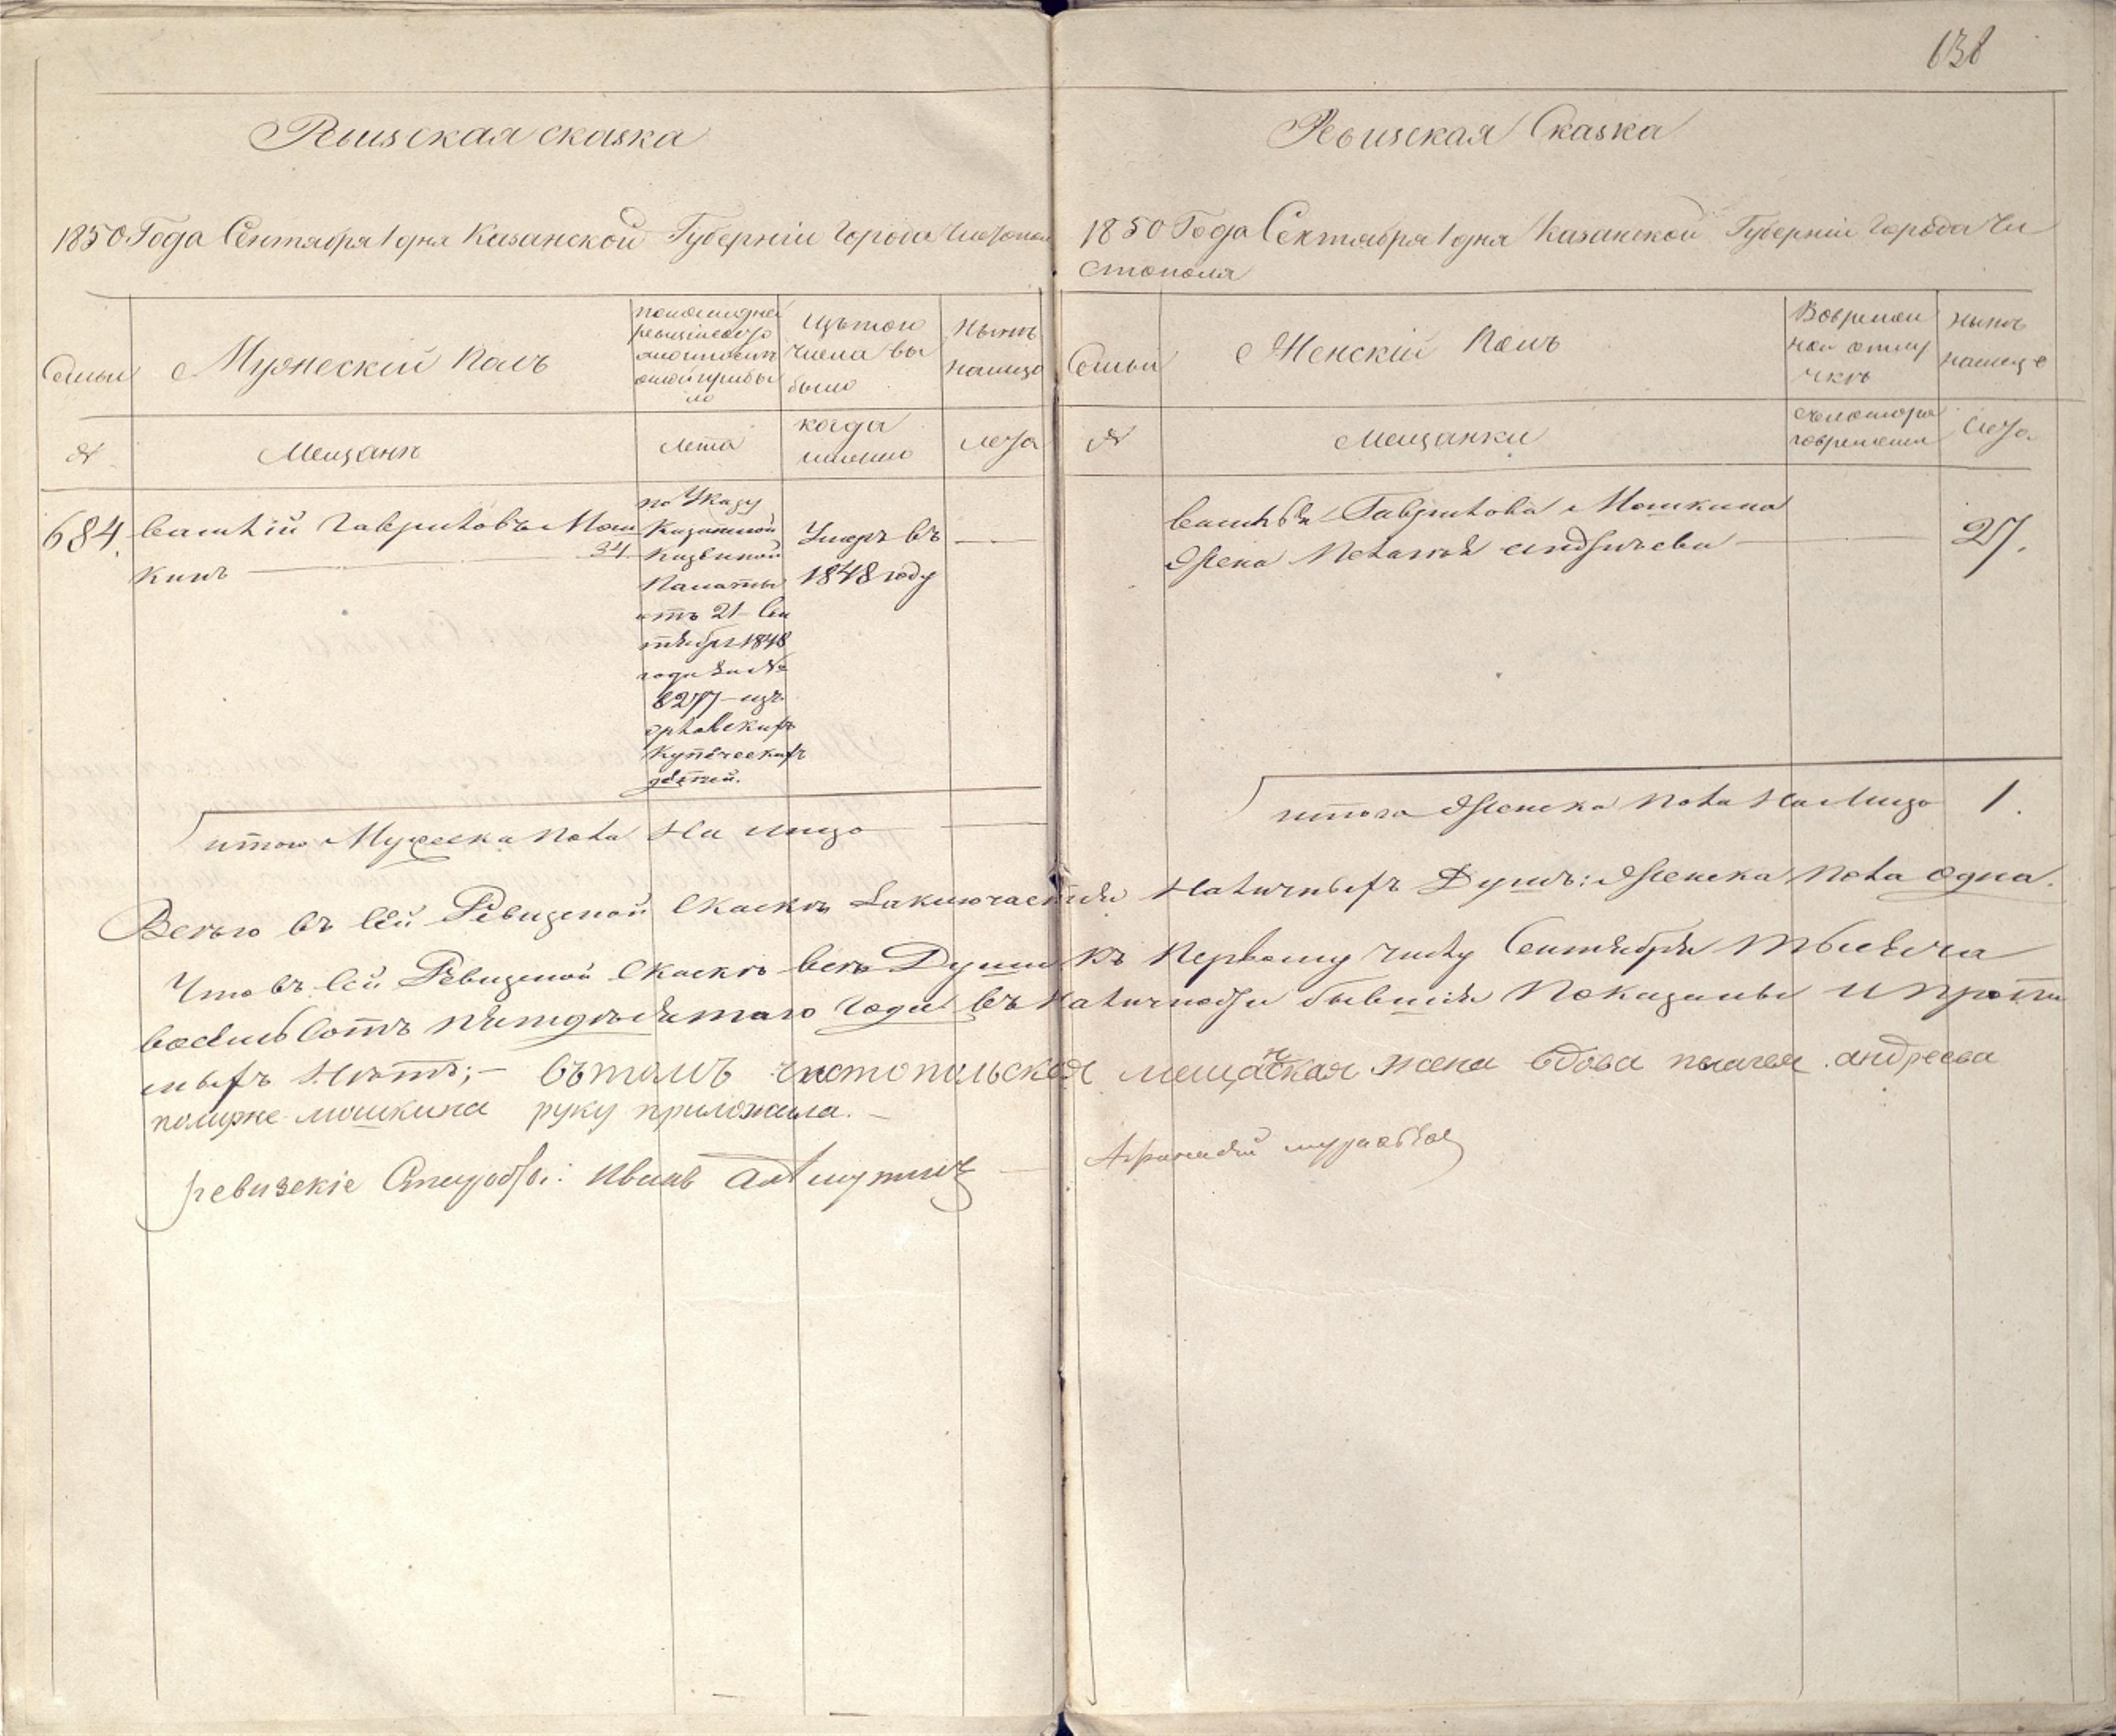 638
Ревизская сказка
1850 Года Сентября 1 дня Казанской Губерніи Города Чистопол
Семьи
Мужескій Полъ
По последней
ревизіи состо
было
Изъ того
числа вы
было
Нынѣ
на лицо
№
Мещанъ
Лета
когда
именно
лета
684.
Василій Гавриловъ Мош
кинъ
34
по Указу
Казанской
Казенной
Палаты
отъ 21 Сен
тября 1848
года за №
8277 изъ
купеческихъ
детей.
Умеръ въ
1848 году
итого Мужеска пола На лицо
Ревизская Сказка
1850 Года Сентября 1 дня Казанской Губерніи Города Чи
стополя
Семьи
Женскій Полъ
Вовремен
ной отлу
чкѣ
Нынѣ
налицо
№
Мещанки
Скотора
говремени
лета
Василья Гаврилова Мошкина
Жена Андреева
27.
итого Женска пола На Лицо 1.
Всего въ Сей Ревизской Скаске Заключается Наличныхъ Душъ: Женска пола одна.
Что въ Сей Ревизской Скаске всѣ Души къ Первому числу Сентября Тысяча
восемь Сотъ пятдесятаго Года въ Наличности бывшія Показаны и пропи
ныхъ Нѣтъ;- въ томъ чистопольская мещанская жена вдова андреева
по муже мошкина руку приложила.-
ревизскіе Иванъ